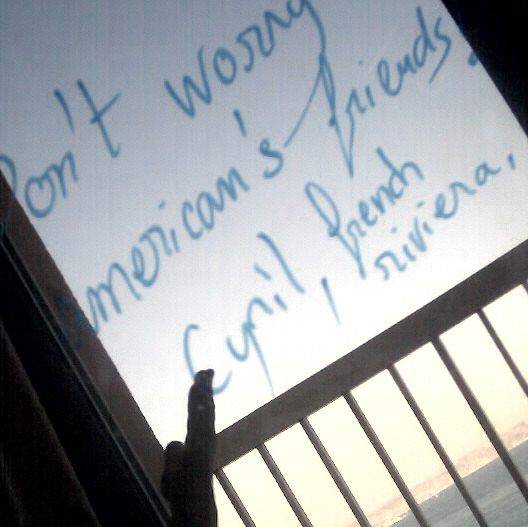 Don't worry
american's friends.
Cyril, french
riviera,